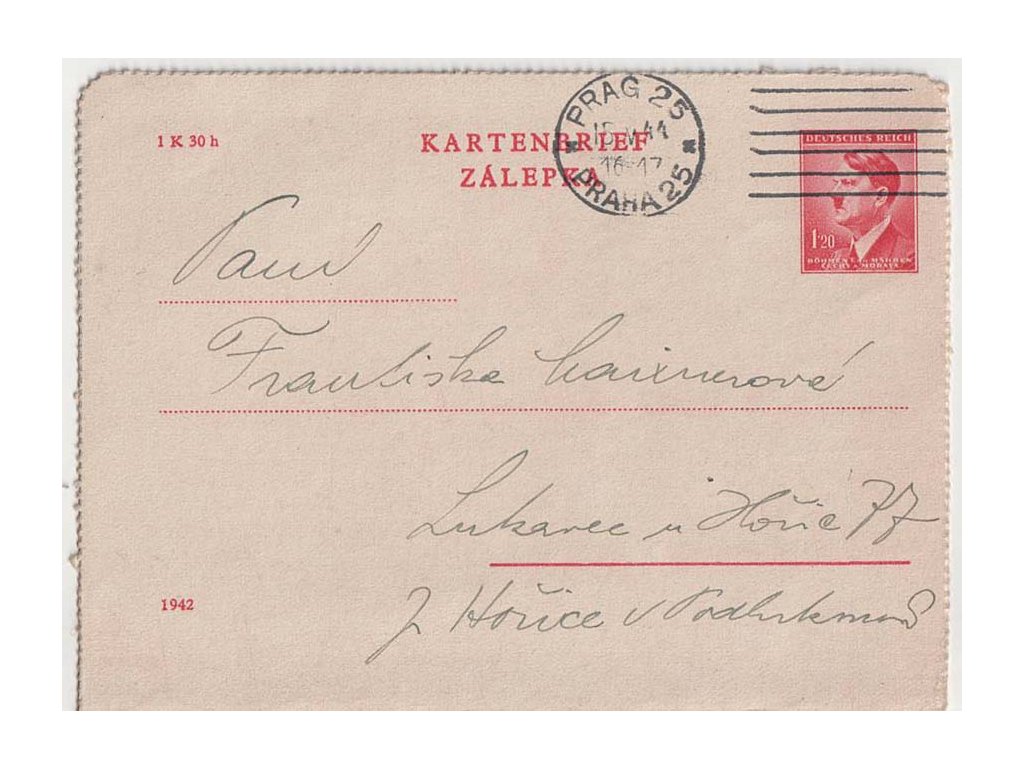 1 K 30 h
KARTENBRIEF
ZÁLEPKA
PRAG 25
15. V. 44
16-17
PRAHA 25
DEUTSCHES REICH
1·20
BÖHMEN U. MÄHREN
ČECHY A MORAVA
Paní
Františka
Lukavec u Hořic
1942
Hořice v